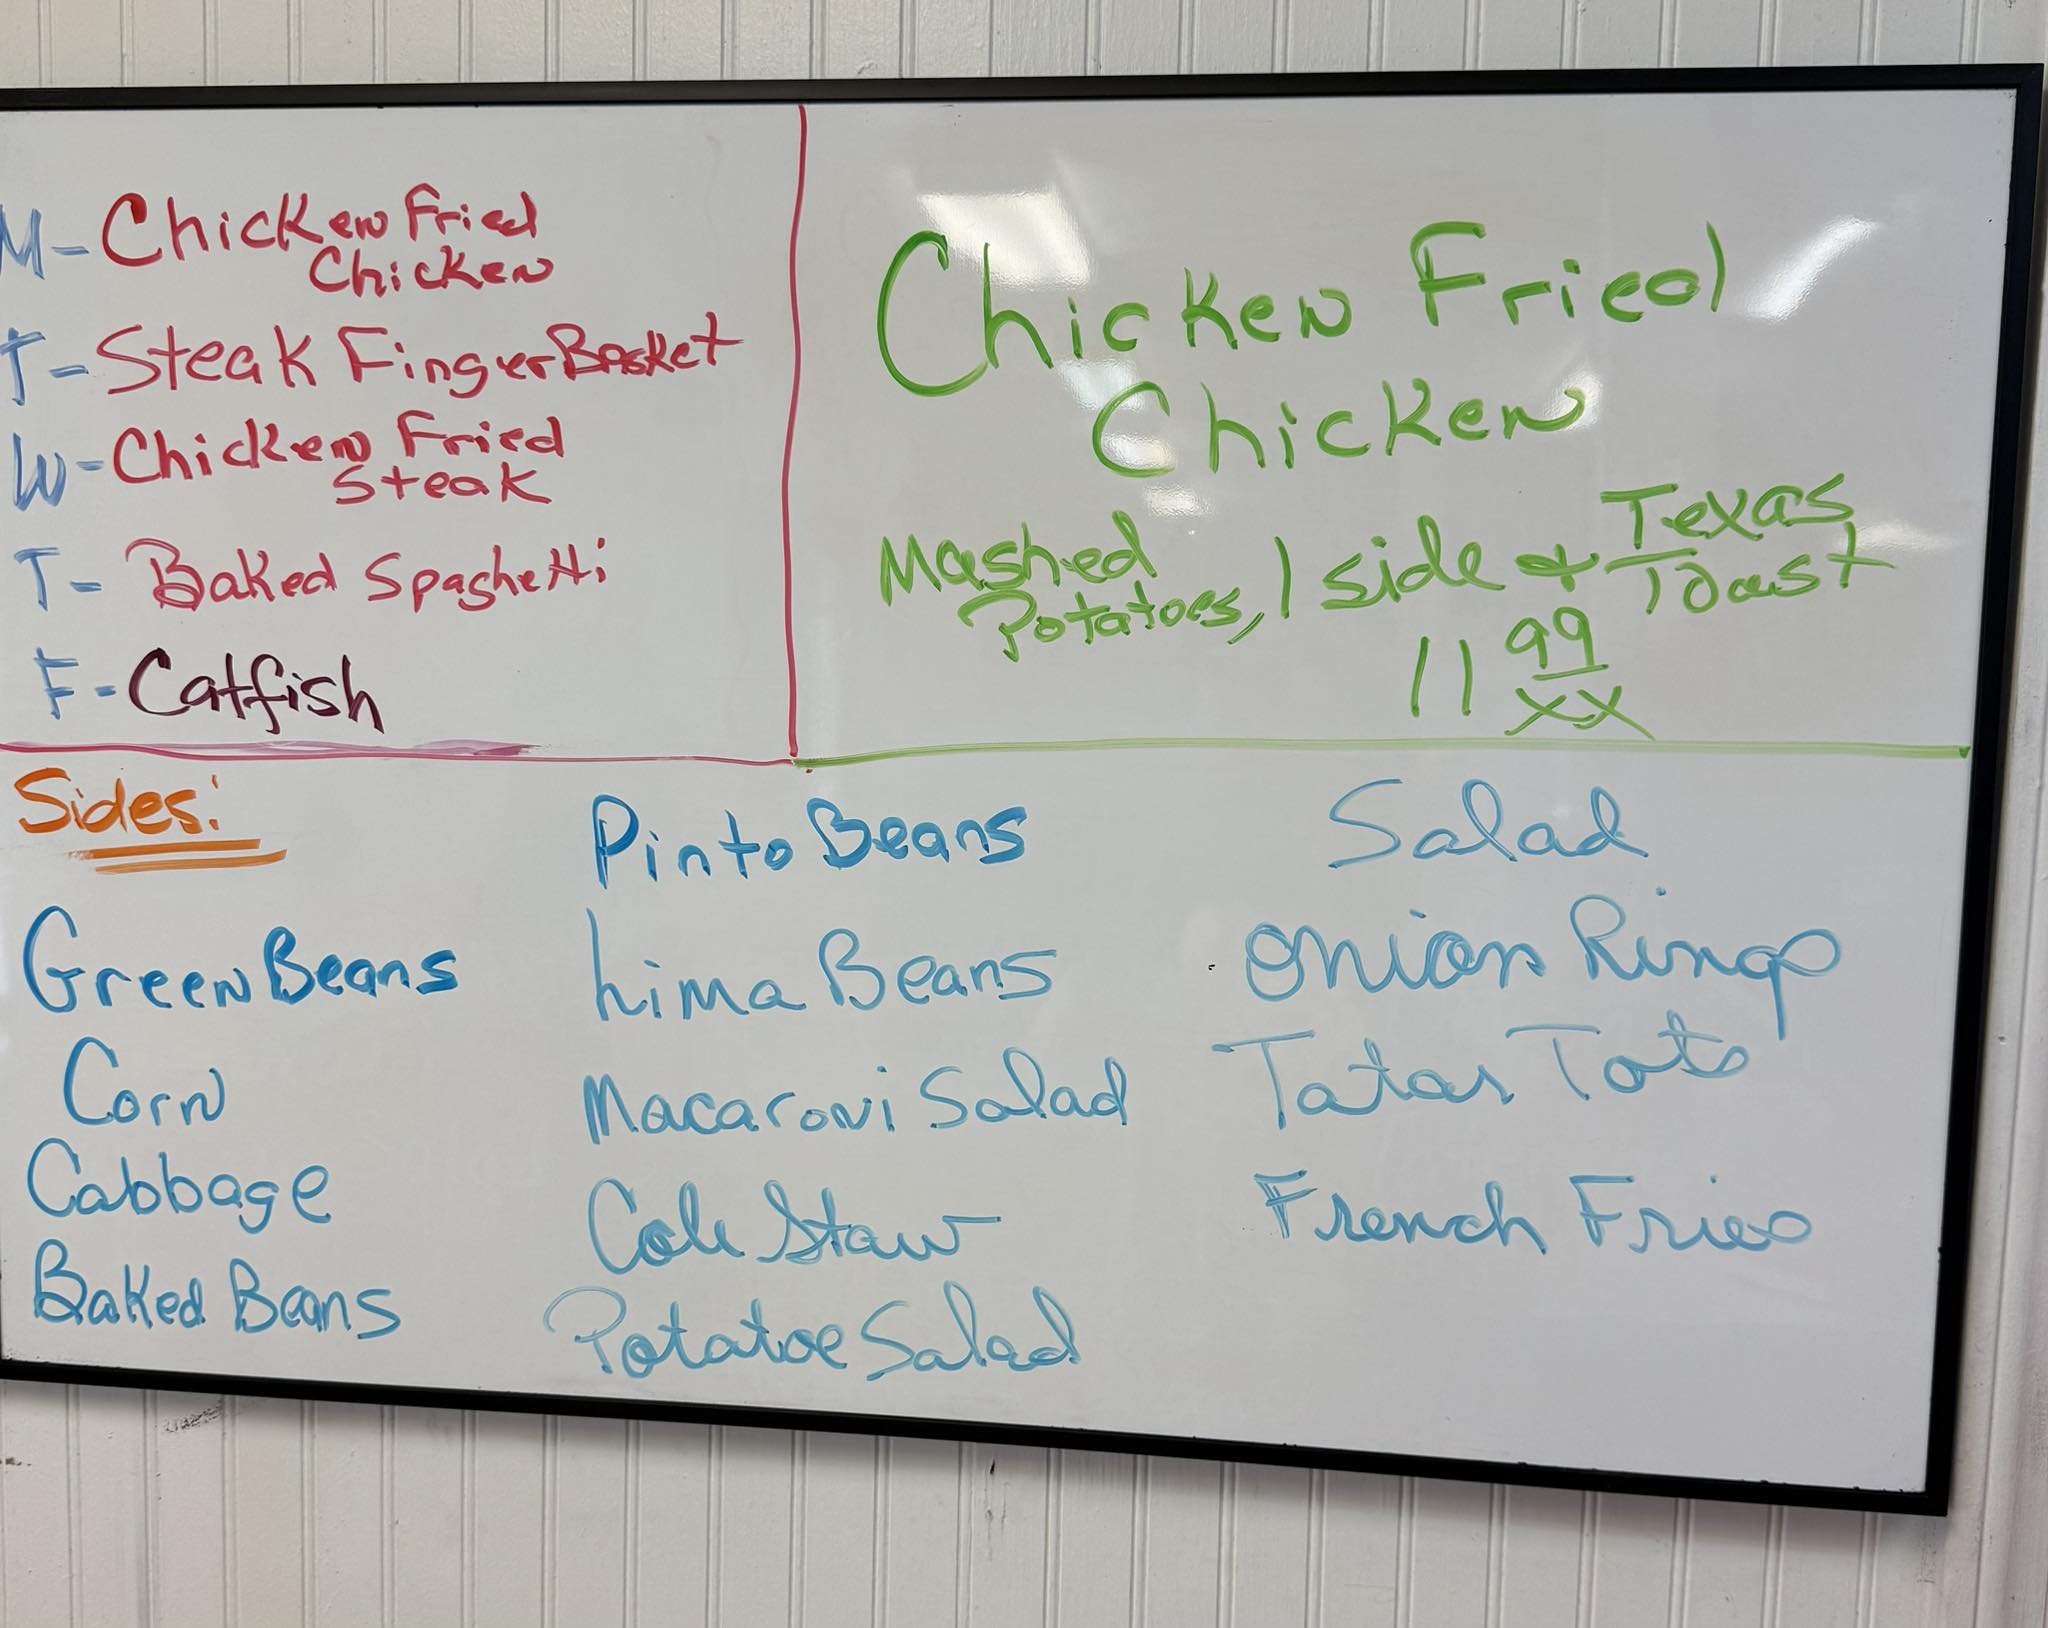 M- Chicken Fried
Chicken
T- Steak Finger Basket
W- Chicken Fried
Steak
T- Baked Spaghetti
F- Catfish
Chicken Fried
Chicken
Mashed
Potatoes, 1 side & Texas
Toast
11 99
xx
Sides:
Green Beans
Corn
Cabbage
Baked Beans
Pinto Beans
Lima Beans
Macaroni Salad
Cole Slaw
Potatoe Salad
Salad
Onion Rings
Tator Tots
French Fries